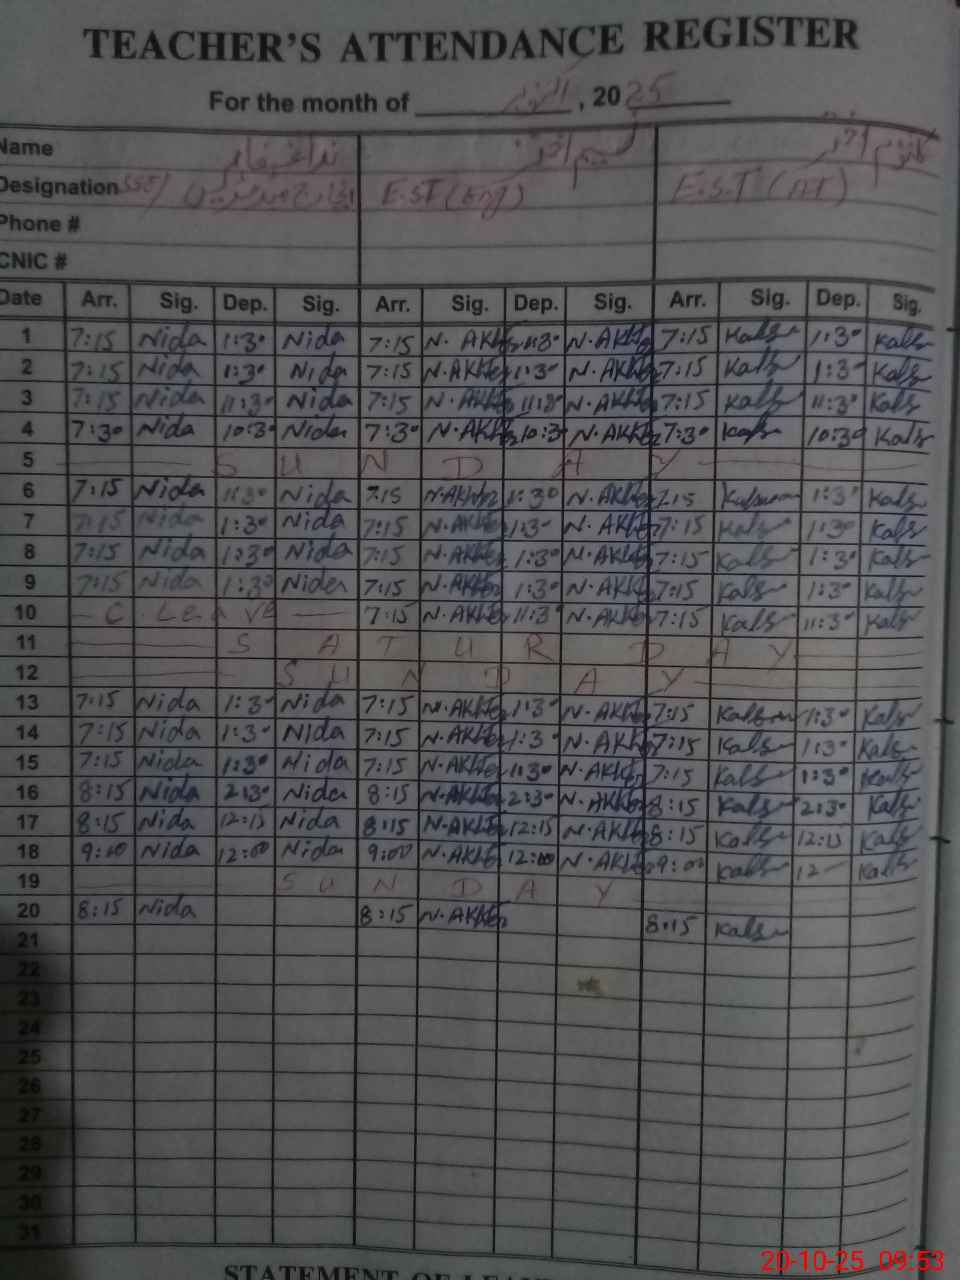 TEACHER'S ATTENDANCE REGISTER
For the month of اکتوبر , 2025
Name نسیم اختر کلثوم اختر
Designation SSE/ E.ST (Eng) E.S.T (AT)
Phone #
CNIC #
Date Arr. Sig. Dep. Sig. Arr. Sig. Dep. Sig. Arr. Sig. Dep. Sig.
1 7:15 Nida 1:30 Nida 7:15 N. Akhter 1:30 N. Akhter 7:15 Kals 1:30 Kals
2 7:15 Nida 1:30 Nida 7:15 N. Akhter 1:30 N. Akhter 7:15 Kals 1:30 Kals
3 7:15 Nida 11:30 Nida 7:15 N. Akhter 11:30 N. Akhter 7:15 Kals 11:30 Kals
4 7:30 Nida 10:30 Nida 7:30 N. Akhter 10:30 N. Akhter 7:30 Kals 10:30 Kals
5 S U N D A Y
6 7:15 Nida 1:30 Nida 7:15 N. Akhter 1:30 N. Akhter 7:15 1:30 Kals
7 7:15 Nida 1:30 Nida 7:15 N. Akhter 1:30 N. Akhter 7:15 Kals 1:30 Kals
8 7:15 Nida 1:30 Nida 7:15 N. Akhter 1:30 N. Akhter 7:15 Kals 1:30 Kals
9 7:15 Nida 1:30 Nida 7:15 N. Akhter 1:30 N. Akhter 7:15 Kals 1:30 Kals
10 C Leave 7:15 N. Akhter 11:30 N. Akhter 7:15 Kals 11:30 Kals
11 S A T U R D A Y
12 S U N D A Y
13 7:15 Nida 1:30 Nida 7:15 N. Akhter 1:30 N. Akhter 7:15 1:30 Kals
14 7:15 Nida 1:30 Nida 7:15 N. Akhter 1:30 N. Akhter 7:15 Kals 1:30 Kals
15 7:15 Nida 1:30 Nida 7:15 N. Akhter 1:30 N. Akhter 7:15 Kals 1:30 Kals
16 8:15 Nida 2:30 Nida 8:15 N. Akhter 2:30 N. Akhter 8:15 Kals 2:30 Kals
17 8:15 Nida 12:15 Nida 8:15 N. Akhter 12:15 N. Akhter 8:15 Kals 12:15 Kals
18 9:00 Nida 12:00 Nida 9:00 N. Akhter 12:00 N. Akhter 9:00 Kals 12 Kals
19 S U N D A Y
20 8:15 Nida 8:15 N. Akhter 8:15 Kals
21
22
23
24
25
26
27
28
29
30
31
20-10-25 09:53
STATEMENT OF LEAVE